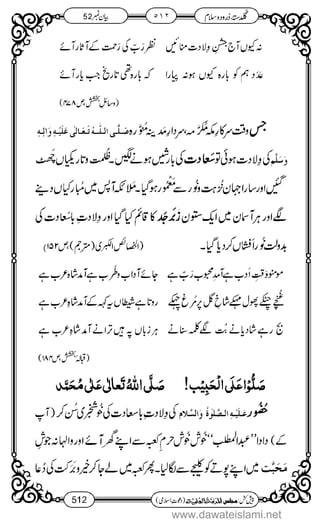 بیان نمبر 52
٥١٢
گلدستۂ درود و سلام
نہ کیوں آج جشنِ ولادت منائیں نظر ربّ کی رحمت کے آثار آئے
عدد ہم کو بارہ کا کیوں ہو نہ پیارا کہ بارہ تھی تاریخ جب یار آئے
(وسائلِ بخشش، ص ۴۷۸)
جس وقت سرکارِ مکّۂ مکرّمہ، سردارِ مدینۂ منوّرہ صَلَّی اللہُ تَعَالٰی عَلَیْہِ وَاٰلِہٖ
وَسَلَّم کی ولادت ہوئی تو سعادتوں کی بارشیں ہونے لگیں۔ ظُلمت و تاریکی چھٹ
گئیں اور سارا جہان نُزہت و نور سے معمور ہوگیا۔ ملائکہ آپس میں مُبارکباد دینے
لگے اور ہر آسمان میں ایک ستون زَبَرجد کا قائم کیا گیا اور ولادتِ باسعادت کی
بدولت نورافشاں کر دیا گیا۔ (الخصائص الکبریٰ (مترجم)، ص ۱۵۲)
مومنو وقتِ ادب ہے آمدِ محبوبِ رب ہے جائے آداب و طرب ہے آمدِ شاہِ عرب ہے
غنچے چٹکے پھول مہکے شاخِ گل پر مرغ چہکے
بج رہے شادیانے بت لگے کلمہ سنانے ہر زباں پہ ہیں ترانے آمدِ شاہِ عرب ہے
(قبالۂ بخشش، ص ۱۸۴)
صَلُّوْا عَلَی الْحَبِیْب! صَلَّی اللہُ تَعَالٰی عَلٰی مُحَمَّد
حضور عَلَیْہِ الصَّلٰوۃُ وَالسَّلَام کی ولادتِ باسعادت کی خوشخبری سن کر (آپ
کے) دادا ’’عبدالمطلب‘‘ خوش خوش حرمِ کعبہ سے اپنے گھر آئے اور والہانہ جوشِ
مَحَبَّت میں اپنے پوتے کو کلیجے سے لگالیا۔ پھر کعبہ میں لے جا کر خیر و برکت کی دُعا
512
www.dawateislami.net